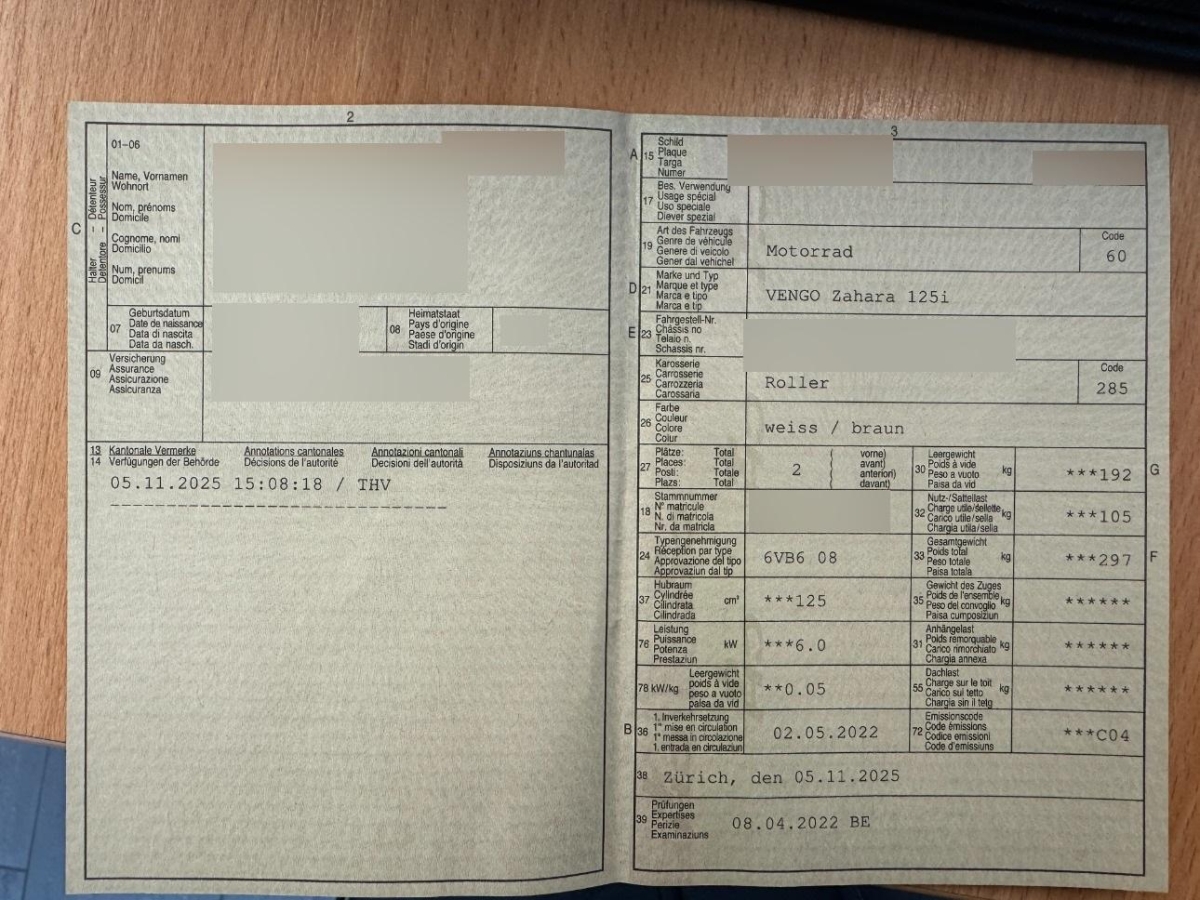 2
C
Halter – Détenteur
Detentore – Possessur
01–06
Name, Vornamen
Wohnort
Nom, prénoms
Domicile
Cognome, nomi
Domicilio
Num, prenums
Domicil
07
Geburtsdatum
Date de naissance
Data di nascita
Data da nasch.
08
Heimatstaat
Pays d'origine
Paese d'origine
Stadi d'origin
09
Versicherung
Assurance
Assicurazione
Assicuranza
13 Kantonale Vermerke Annotations cantonales Annotazioni cantonali Annotaziuns chantunalas
14 Verfügungen der Behörde Décisions de l'autorité Decisioni dell'autorità Disposiziuns da l'autoritad
05.11.2025 15:08:18 / THV
3
A 15
Schild
Plaque
Targa
Numer
17
Bes. Verwendung
Usage spécial
Uso speciale
Diever spezial
19
Art des Fahrzeugs
Genre de véhicule
Genere di veicolo
Gener dal vehichel
Motorrad
Code
60
D 21
Marke und Typ
Marque et type
Marca e tipo
Marca e tip
VENGO Zahara 125i
E 23
Fahrgestell-Nr.
Châssis no
Telaio n.
Schassis nr.
25
Karosserie
Carrosserie
Carrozzeria
Carossaria
Roller
Code
285
26
Farbe
Couleur
Colore
Colur
weiss / braun
27
Plätze: Total
Places: Total
Posti: Totale
Plazs: Total
2
( vorne)
( avant)
( anteriori)
( davant)
30
Leergewicht
Poids à vide
Peso a vuoto
Paisa da vid
kg
***192
G
18
Stammnummer
N° matricule
N. di matricola
Nr. da matricla
32
Nutz-/Sattellast
Charge utile/sellette
Carico utile/sella
Chargia utila/sella
kg
***105
24
Typengenehmigung
Réception par type
Approvazione del tipo
Approvaziun dal tip
6VB6 08
33
Gesamtgewicht
Poids total
Peso totale
Paisa totala
kg
***297
F
37
Hubraum
Cylindrée
Cilindrata
Cilindrada
cm³
***125
35
Gewicht des Zuges
Poids de l'ensemble
Peso del convoglio
Paisa cumposiziun
kg
******
76
Leistung
Puissance
Potenza
Prestaziun
kW
***6.0
31
Anhängelast
Poids remorquable
Carico rimorchiato
Chargia annexa
kg
******
78 kW/kg
Leergewicht
poids à vide
peso a vuoto
paisa da vid
**0.05
55
Dachlast
Charge sur le toit
Carico sul tetto
Chargia sin il tetg
kg
******
B 36
1. Inverkehrsetzung
1re mise en circulation
1a messa in circolazione
1. entrada en circulaziun
02.05.2022
72
Emissionscode
Code émissions
Codice emissioni
Code d'emissiuns
***C04
38 Zürich, den 05.11.2025
39
Prüfungen
Expertises
Perizie
Examinaziuns
08.04.2022 BE